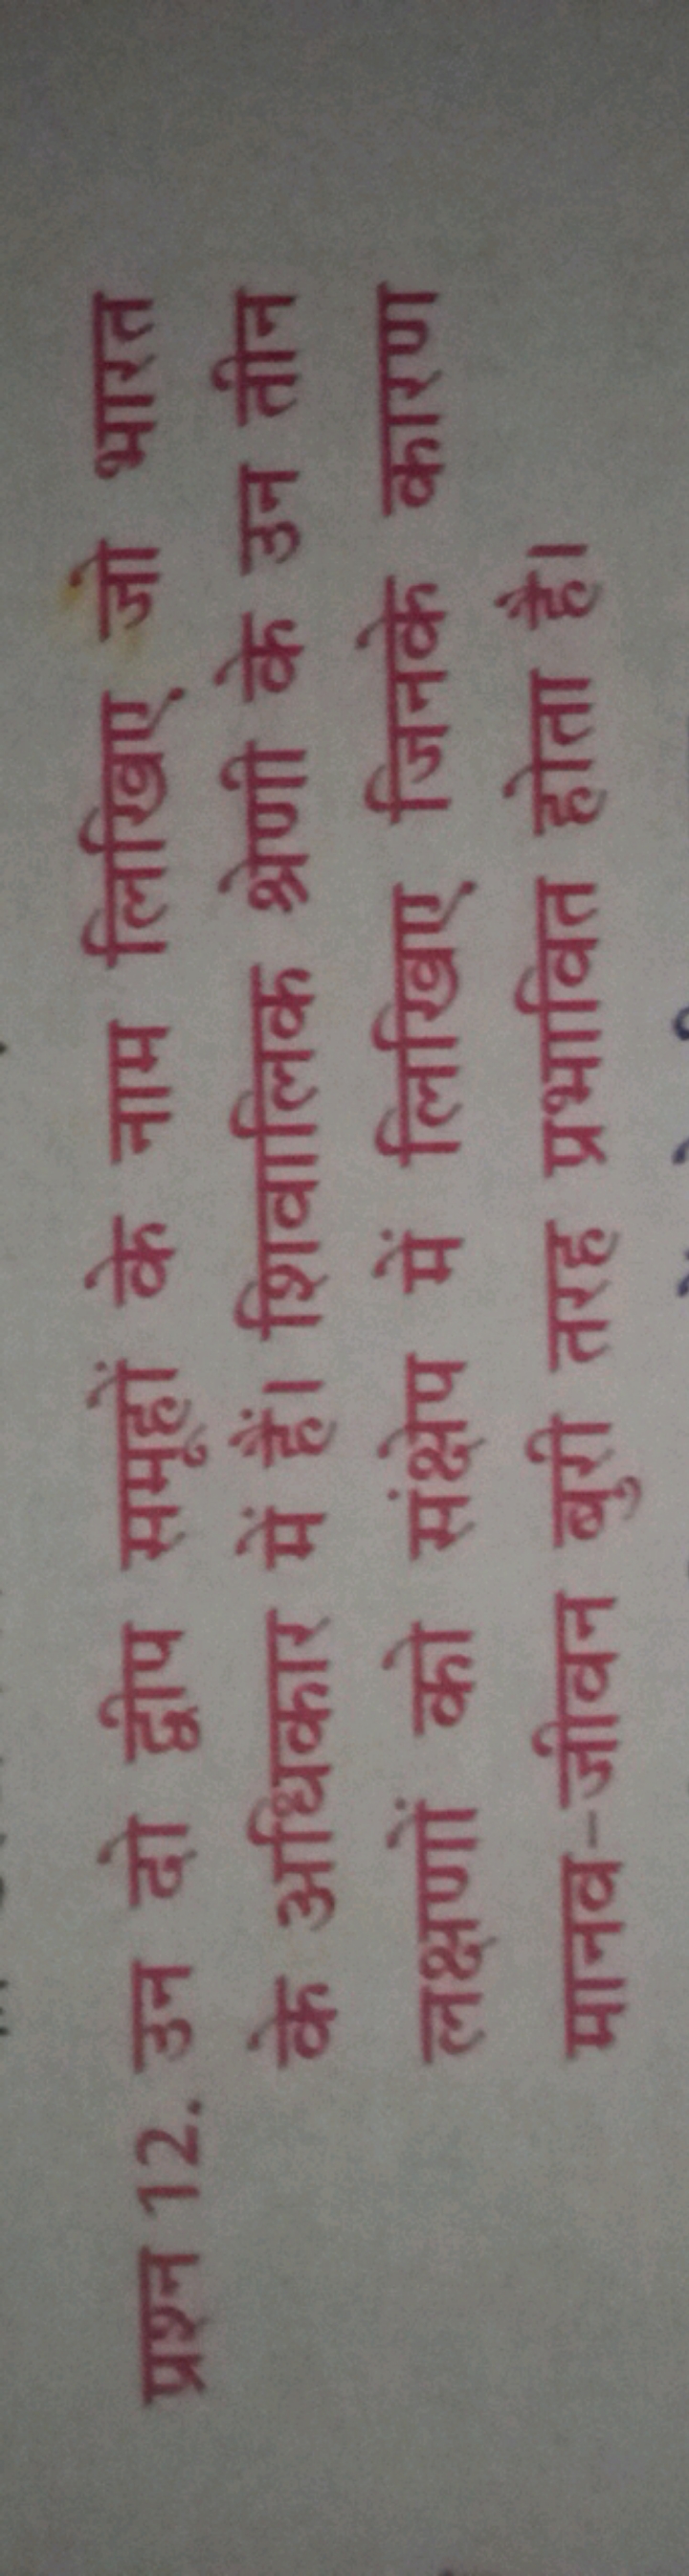 प्रश्न 12. उन दो द्वीप समूहों के नाम लिखिए जो भारत
के अधिकार में हैं। शिवालिक श्रेणी के उन तीन
लक्षणों को संक्षेप में लिखिए जिनके कारण
मानव-जीवन बुरी तरह प्रभावित होता है।